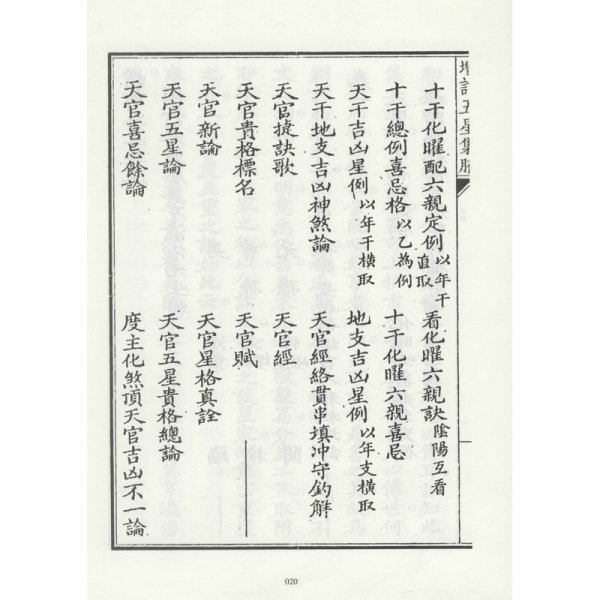 增訂五星集腋
十干化曜配六親定例以年干直取
看化曜六親訣陰陽互看
十干總例喜忌格以乙為例
十干化曜六親喜忌
天干吉凶星例以年干橫取
地支吉凶星例以年支橫取
天干地支吉凶神煞論
天官經絡貫串填冲守鈞解
天官捷訣歌
天官經
天官貴格標名
天官賦
天官新論
天官星格真詮
天官五星論
天官五星貴格總論
天官喜忌餘論
度主化煞頂天官吉凶不一論
020